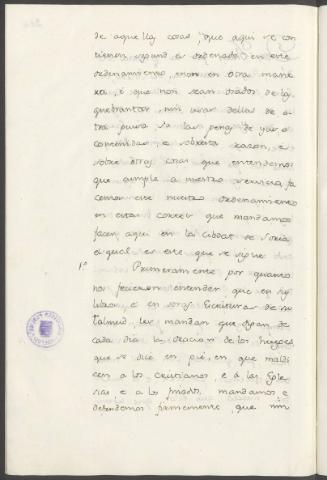 de aquellas cosas, que aqui se con
tienen, segund es ordenado en este
ordenamiento, e non en otra mane
ra, é que non sean osados de las
quebrantar, nin usar dellas de o-
tra guisa so las penas de yuso
contenidas, e sobresta razon, e
sobre otras cosas que entendemos
que cumple a nuestro servicio, fa
cemos este nuestro ordenamiento
en estas cortes que mandamos
facer aqui en la Cibdat de Soria,
el qual es este que se sigue
Primeramente por quanto
nos ficieron entender que en sus
libros é en otras Escrituras de su
talmud, les mandan que digan de
cada dia la oracion de los hereges
que se dice en pié, en que maldi
cen a los cristianos, e á las Egle-
sias e a los finados, mandamos e
defendemos firmemente, que nin